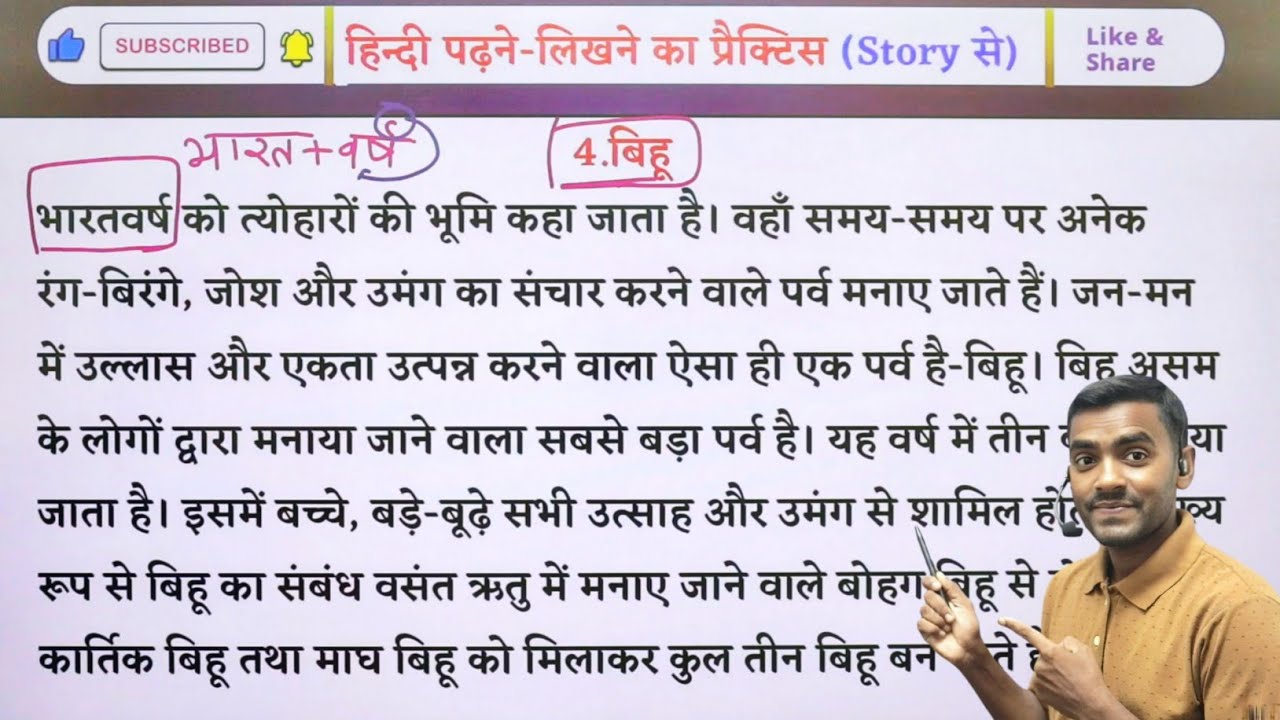 SUBSCRIBED
हिन्दी पढ़ने-लिखने का प्रैक्टिस (Story से)
Like &
Share
भारत+वर्ष
4.बिहू
भारतवर्ष को त्योहारों की भूमि कहा जाता है। वहाँ समय-समय पर अनेक
रंग-बिरंगे, जोश और उमंग का संचार करने वाले पर्व मनाए जाते हैं। जन-मन
में उल्लास और एकता उत्पन्न करने वाला ऐसा ही एक पर्व है-बिहू। बिहू असम
के लोगों द्वारा मनाया जाने वाला सबसे बड़ा पर्व है। यह वर्ष में तीन
जाता है। इसमें बच्चे, बड़े-बूढ़े सभी उत्साह और उमंग से शामिल
रूप से बिहू का संबंध वसंत ऋतु में मनाए जाने वाले बोहाग बिहू से
कार्तिक बिहू तथा माघ बिहू को मिलाकर कुल तीन बिहू बन